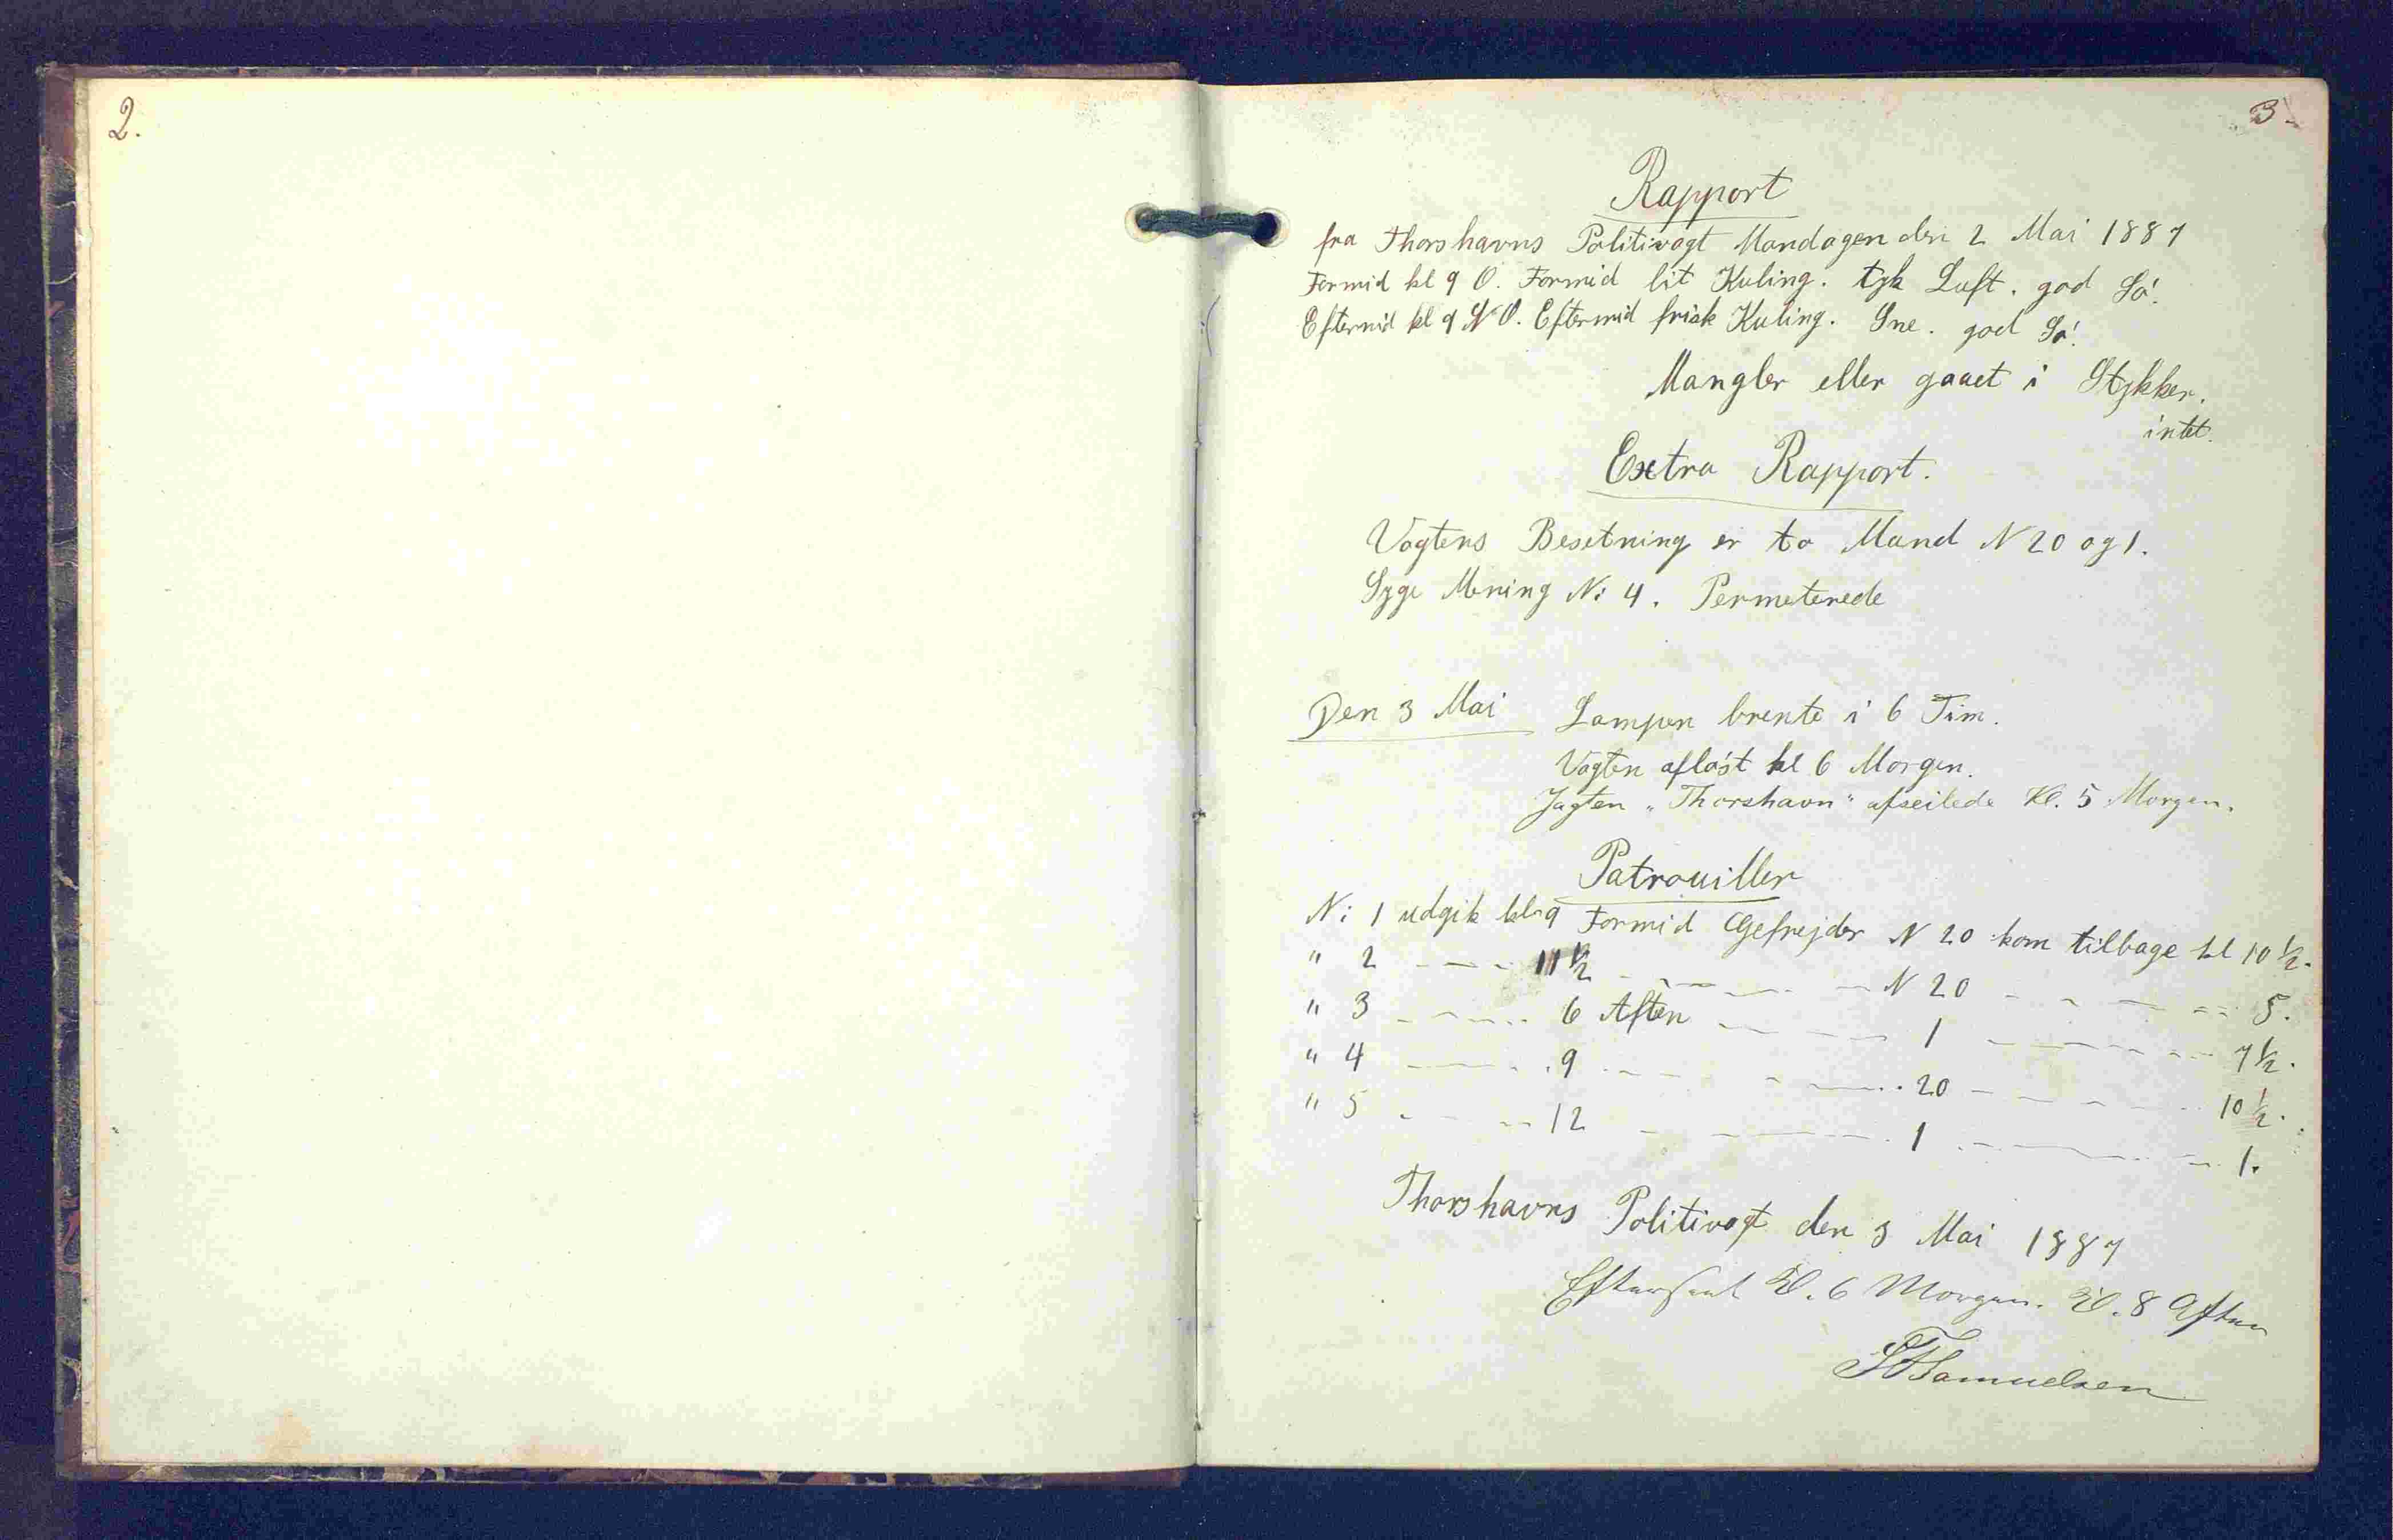 2.
3.
Rapport
fra Thorshavns Politivagt Mandagen den 2 Mai 1887
Formid kl 9 O. Formid lit Kuling. tyk Luft. god Sö.
Eftermid kl 9 N.O. Eftermid frisk Kuling. Sne. god Sö.
Mangler eller gaaet i Stykker.
intet.
Extra Rapport.
Vagtens Besetning er to Mand N 20 og 1.
Syge Mening N: 4. Permeterede
Den 3 Mai Lampen brente i 6 Tim.
Vagten aflöst kl 6 Morgen.
Jagten "Thorshavn" afseilede Kl. 5 Morgen.
Patrouiller
N: 1 udgik kl 9 Formid Gefrejder N 20 kom tilbage kl 10 1/2.
" 2 - - - 11 1/2 - - - - N 20 - - - - 5.
" 3 - - - 6 Aften - - - 1 - - - - 7 1/2.
" 4 - - - 9 - - - - 20 - - - - 10 1/2.
" 5 - - - 12 - - - - 1 - - - - 1.
Thorshavns Politivagt den 3 Mai 1887
Efterseet Kl. 6 Morgen. Kl. 8 Aften
Samuelsen